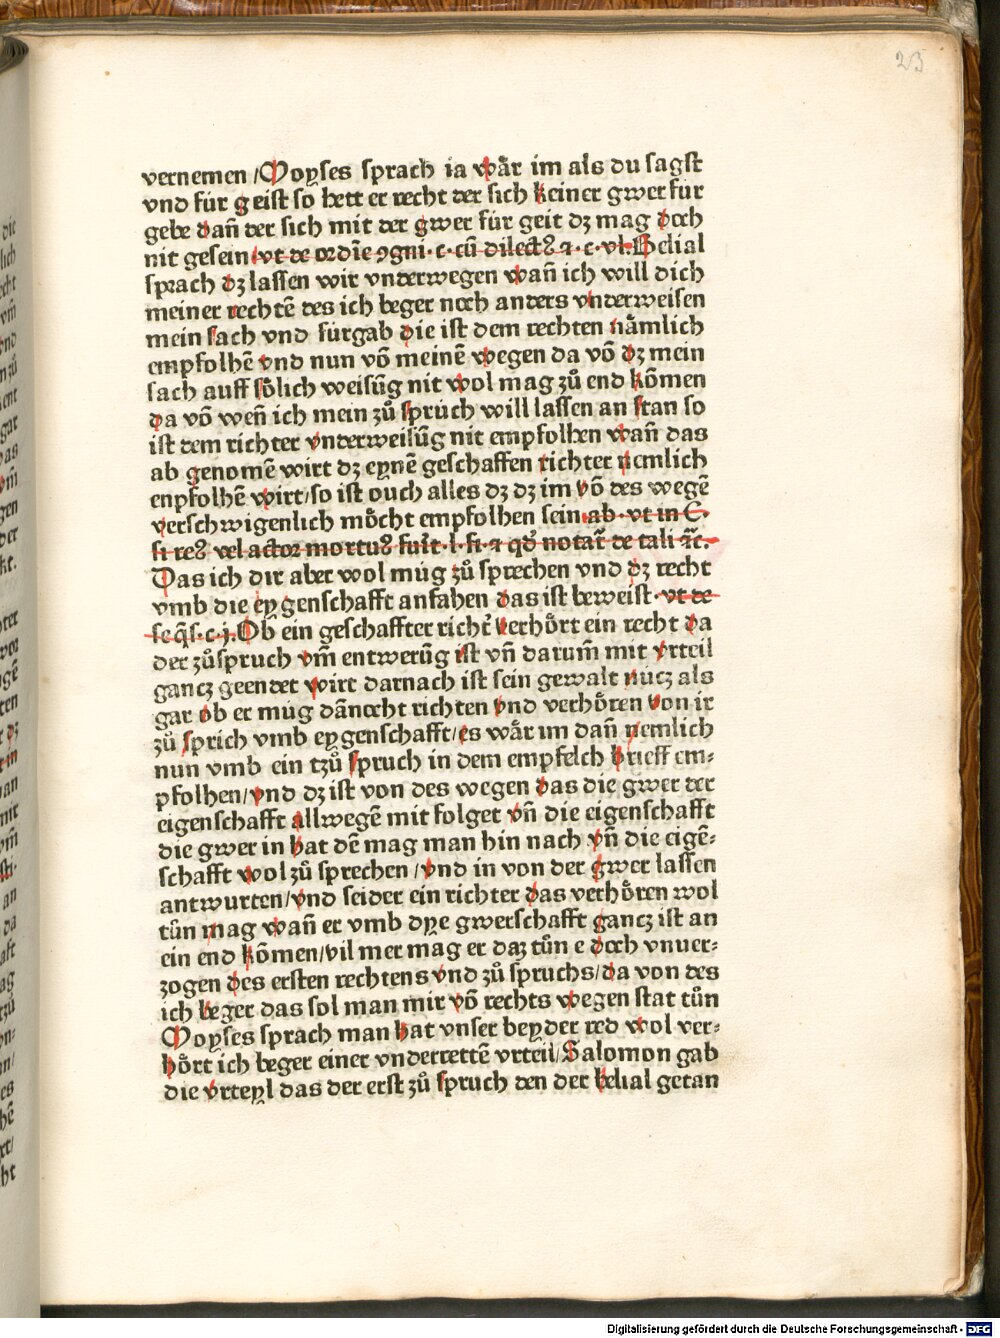 23
vernemen /Moyses sprach ia wår im als du sagst
vnd für geist so hett er recht der sich keiner gwer fur
gebe dañ der sich mit der gwer für geit dz mag doch
nit gesein·vt de ordīe ꝯgni·c·cū dilectꝰ ⁊·c·vl·Belial
sprach dz lassen wir vnderwegen wañ ich will dich
meiner rechtē des ich beger noch anders vnderweisen
mein sach vnd furgab die ist dem rechten nåmlich
empfolhē vnd nun vō meinē wegen da vō dz mein
sach auff sölich weisūg nit wol mag zů end kōmen
da vō weñ ich mein zů spruch will lassen an stan so
ist dem richter vnderweisūg nit empfolhen wañ das
ab genomē wirt dz eynē geschaffen richter nemlich
enpfolhē wirt/so ist ouch alles dz dz im vō des wegē
verschwigenlich möcht empfolhen sein·ab·vt in C·
si reꝰ vel actor mortuꝰ fuīt·l·fi·⁊ qđ notaꝛ̄ de tali
Das ich dir aber wol mug zů sprechen vnd dz recht
vmb die eygenschafft anfahen das ist beweist·vt de
se q̄s·c·j·Ob ein geschaffter richt̄ verhört ein recht da
der zůspruch vm̄ entwerūg ist vn̄ darum̄ mit vrteil
gancz geendet wirt darnach ist sein gewalt nücz als
gar ob er mug dānocht richten vnd verhören von ir
zů sprich vmb eygenschafft/es wår im dañ nemlich
nun vmb ein tzů spruch in dem empfelch brieff em⸗
pfolhen/vnd dz ist von des wegen das die gwer der
eigenschafft allwegē mit folget vn̄ die eigenschafft
die gwer in hat dē mag man hin nach vn̄ die eigē⸗
schafft wol zů sprechen /vnd in von der gwer lassen
antwurten/vnd seider ein richter das verhören wol
tůn mag wañ er vmb dye gwerschafft gancz ist an
ein end kōmen/vil mer mag er daz tůn e doch vnuer⸗
zogen des ersten rechtens vnd zů spruchs/da von des
ich beger das sol man mir vō rechts wegen stat tůn
Moyses sprach man hat vnser beyder red wol ver⸗
hört ich beger einer vnderrettē vrteil/Salomon gab
die vrteyl das der erst zů spruch den der belial getan
Digitalisierung gefördert durch die Deutsche Forschungsgemeinschaft - DFG